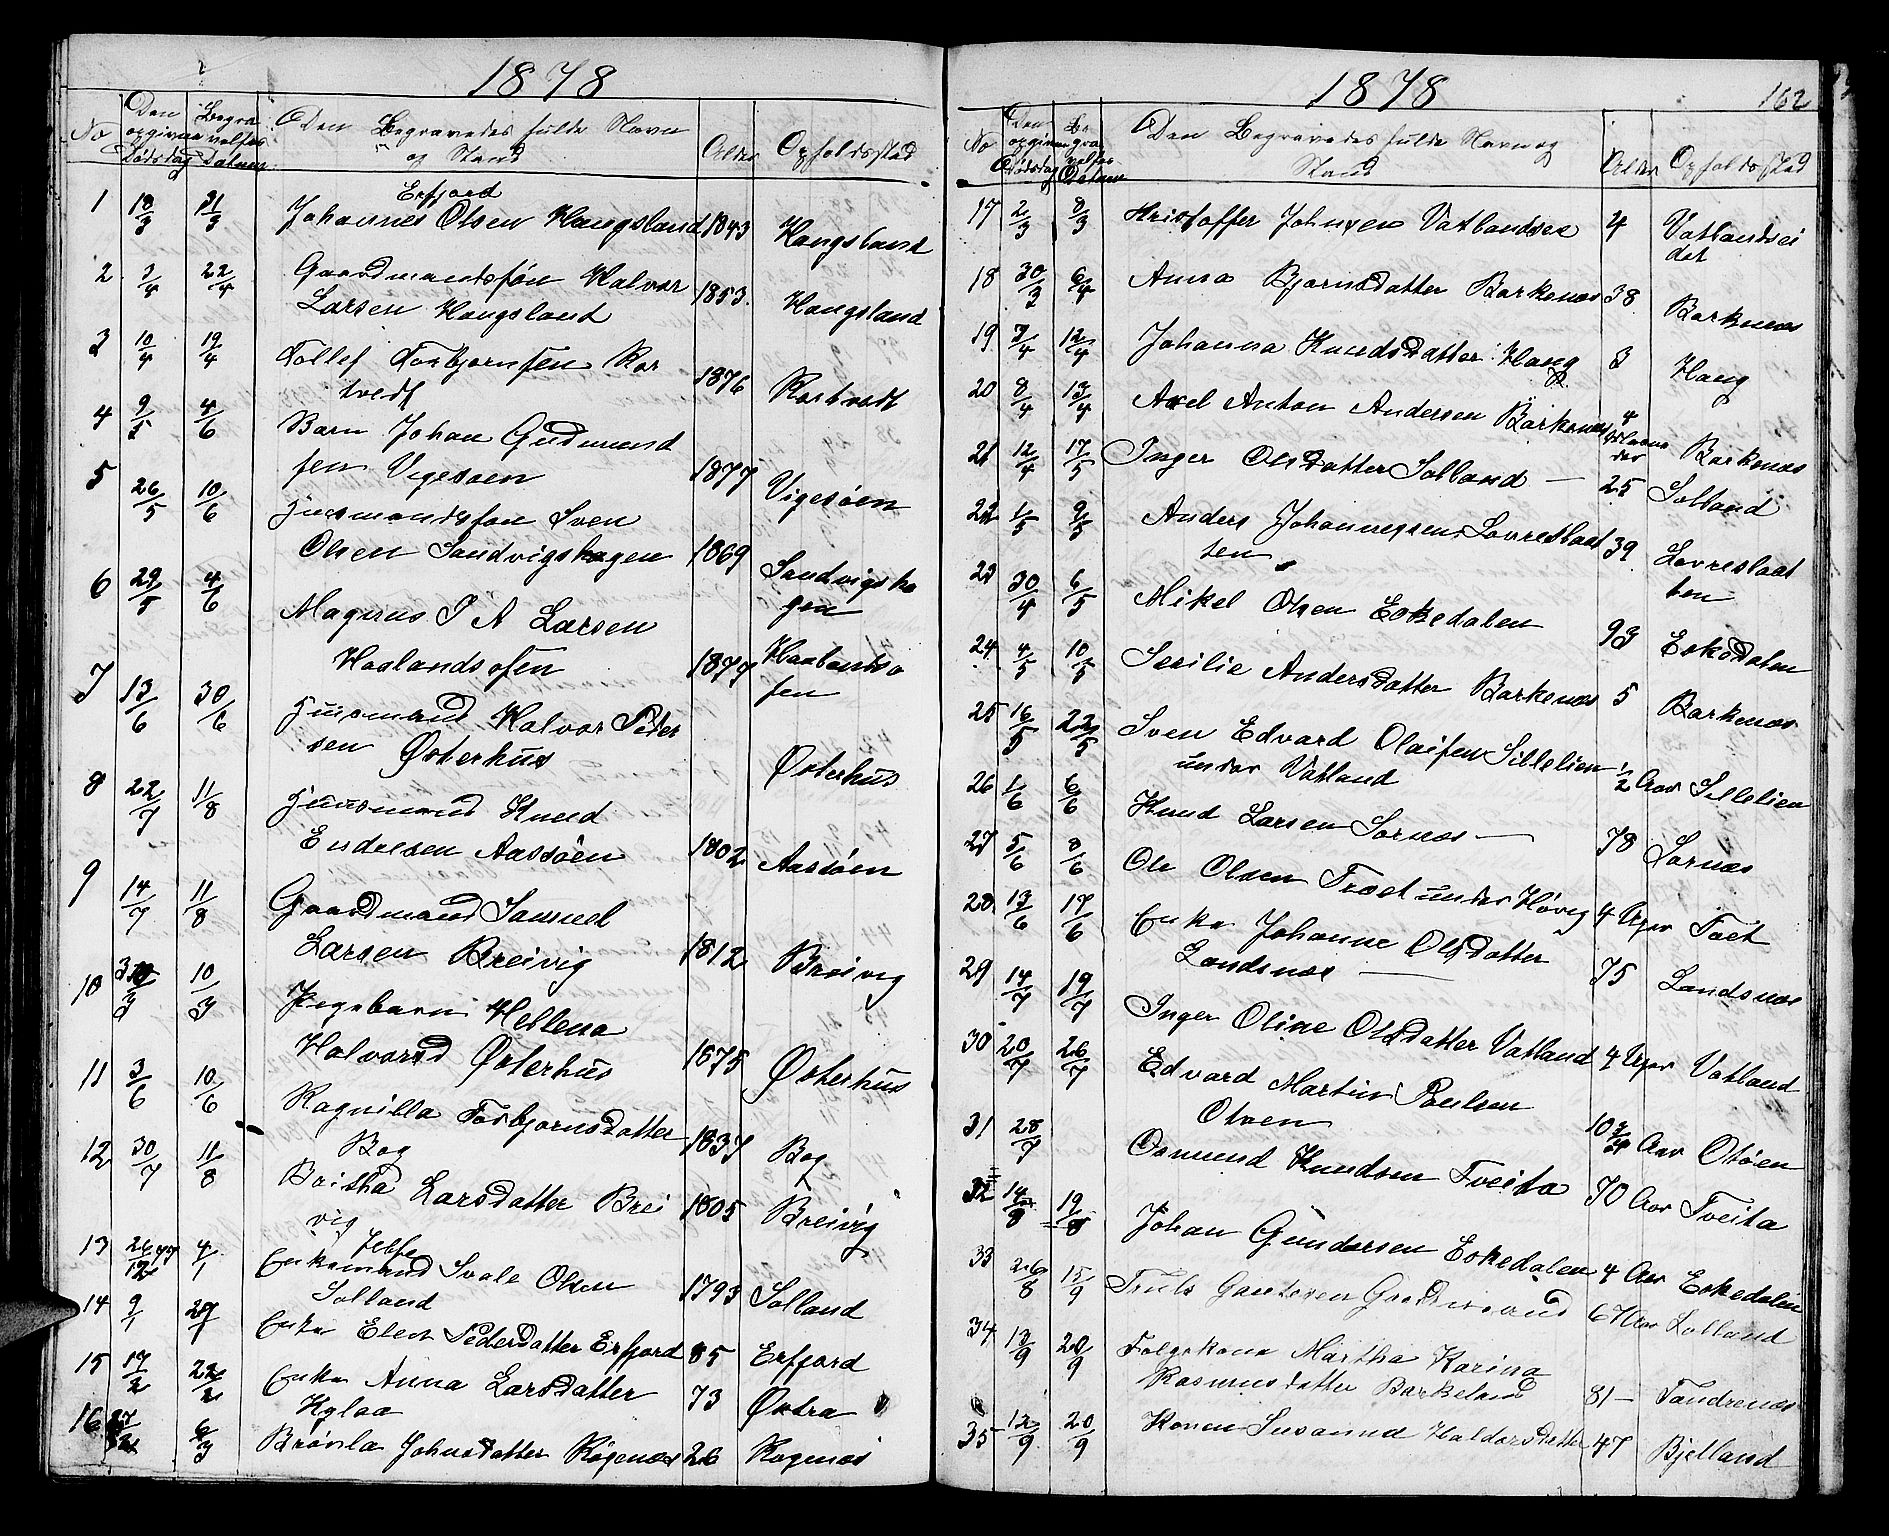 1878
No Den opgivne Dødsdag Begravelses Datum Den Begravedes fulde Navn og Stand Alder Opholdsstad
Erfjord
1 18/3 21/3 Johannes Olsen Haugsland 1843 Haugsland
2 3/4 22/4 Gaardmandsføn Halvor
Larsen Haugsland 1853. Haugsland
3 10/4 19/4 Tollef Torbjørnsen Kor
tvedt 1876 Kortvedt
4 9/5 4/6 Barn Johan Gudmund
sen Vigesøen 1877 Vigesøen
5 26/5 10/6 Husmandsføn Sven
Olsen Sandvigshagen 1869 Sandvigsha
gen
6 29/5 4/6 Magnus P A Larsen
Haalandsofen 1877 Haalandso
fen
7 13/6 30/6 Husmand Halvor Peder
sen Østerhus Østerhus
8 22/7 11/8 Husmand Knud
Endresen Aasøen 1802 Aasøen
9 14/7 11/8 Gaardmand Samuel
Larsen Breivig 1812 Breivig
10 10/3 Pigebarn Hellena
Halvorsd Østerhus 1875 Østerhus
11 3/6 10/6 Ragnilla Torbjørnsdatter
Bog 1837 Bog
12 30/7 11/8 Britha Larsdatter Brei
vig 1805 Breivig
Jelse
13 26/12 77 4/1 Enkemand Svale Olsen
Solland 1793 Solland
14 9/1 Enke Elen Pedersdatter Erfjord 85 Erfjord
15 17/2 22/2 Enke Anna Larsdatter
Hylaa 73 Østraa
16 6/3 Brønla Johnsdatter Røgenæs 26 Røgenæs
1878
162
No Den opgivne Dødsdag Begravelses Datum Den Begravedes fulde Navn og Stand Alder Opholdsstad
17 2/3 8/3 Kristoffer Johnsen Vatlandsei 4 Vatlandsei
det
18 30/3 6/4 Anna Bjørnsdatter Barkenæs 38. Barkenæs
19 3/4 12/4 Johanna Knudsdatter Haug 3 Haug
20 8/4 13/4 Axel Anton Andersen Barkenæs 4 Maane
der Barkenæs
21 12/4 17/5 Inger Olsdatter Solland — 25 Solland
22 1/5 9/5 Anders Johannesen Lovreslaat
ten 39. Lovreslaat
ten
23 30/4 6/5 Mikel Olsen Eskedalen 93 Eskedalen
24 4/5 10/5 Sesilie Andersdatter Barkenæs 5 Barkenæs
25 16/5 22/5 Sven Edvard Olaisen Sillelien
under Vatland 1/2 Aar Sillelien
26 1/6 6/6 Knud Larsen Sørnæs — 78 Sørnæs
27 5/6 8/6 Ole Olsen Træet under Høvig 4 Uger Træet
28 13/6 17/6 Enke Johanne Olsdatter
Landsnæs — 75 Landsnæs
29 14/7 19/7 Inger Oline Olsdatter Vatland 4 Uger Vatland
30 20/7 26/7 Edvard Martin Poulsen
Otøen 10 3/4 Aar Otøen
31 28/7 Osmund Knudsen Tveita 70 Aar Tveita
32 14/8 19/8 Johan Gundersen Eskedalen 4 Aar Eskedalen
33 26/8 15/9 Truls Gautesen Gaardmand 67 Aar Lolland
34 13/9 20/9 Følgekone Martha Karina
Rasmusdatter Barkeland 81 — Tandrenæs
35 12/9 20/9 Konen Susanna Haldorsdatter 47 Bjelland